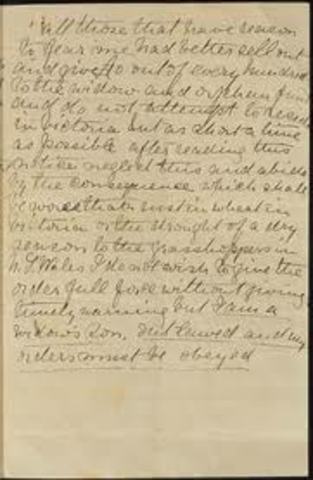 all those that have reason
to fear me had better sell out
and give £10 out of every hundred
to the widow and orphan fund
and do not attempt to reside
in Victoria but as short a time
as possible after reading this
notice neglect this and abide
by the consequences which shall
be worse than rust in wheat in
Victoria or the drought of a dry
season to the grasshoppers in
N.S.Wales I do not wish to give the
order full force without giving
timely warning but I am a
widow's son. outlawed and my
orders must be obeyed